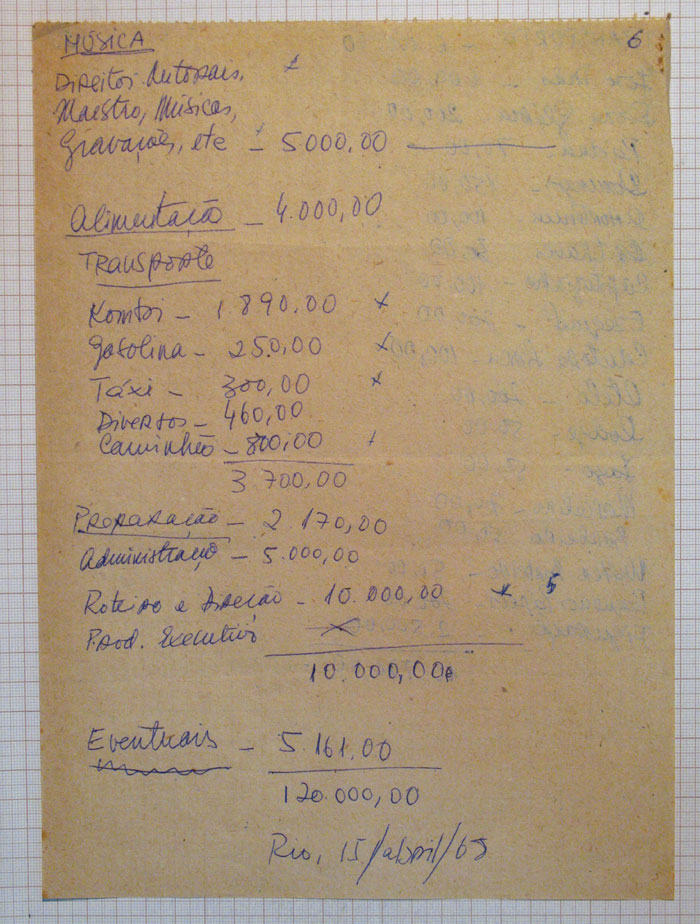 6
MÚSICA
Direitos Autorais,
Maestro, Músicos,
Gravações, etc - 5000,00
Alimentação - 4.000,00
TRANSPORTE
Kombi - 1.890,00 x
Gasolina - 250,00 x
Táxi - 300,00 x
Diversos - 460,00
Caminhão - 800,00
3.700,00
Preparação - 2.170,00
Administração - 5.000,00
Roteiro e Direção - 10.000,00 x 5
Prod. Executivo
10.000,00
Eventuais - 5.161,00
120.000,00
Rio, 15/abril/68